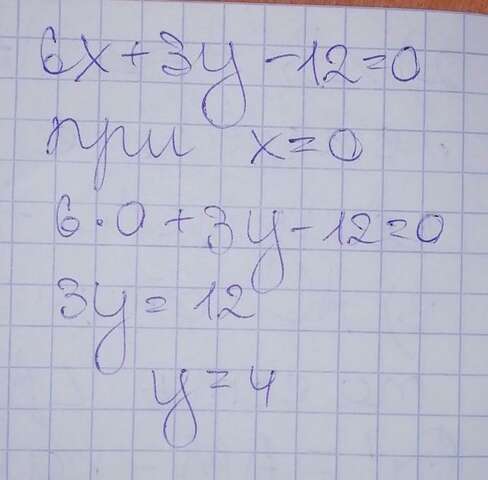 6x+3y-12=0
при x=0
6·0+3y-12=0
3y=12
y=4